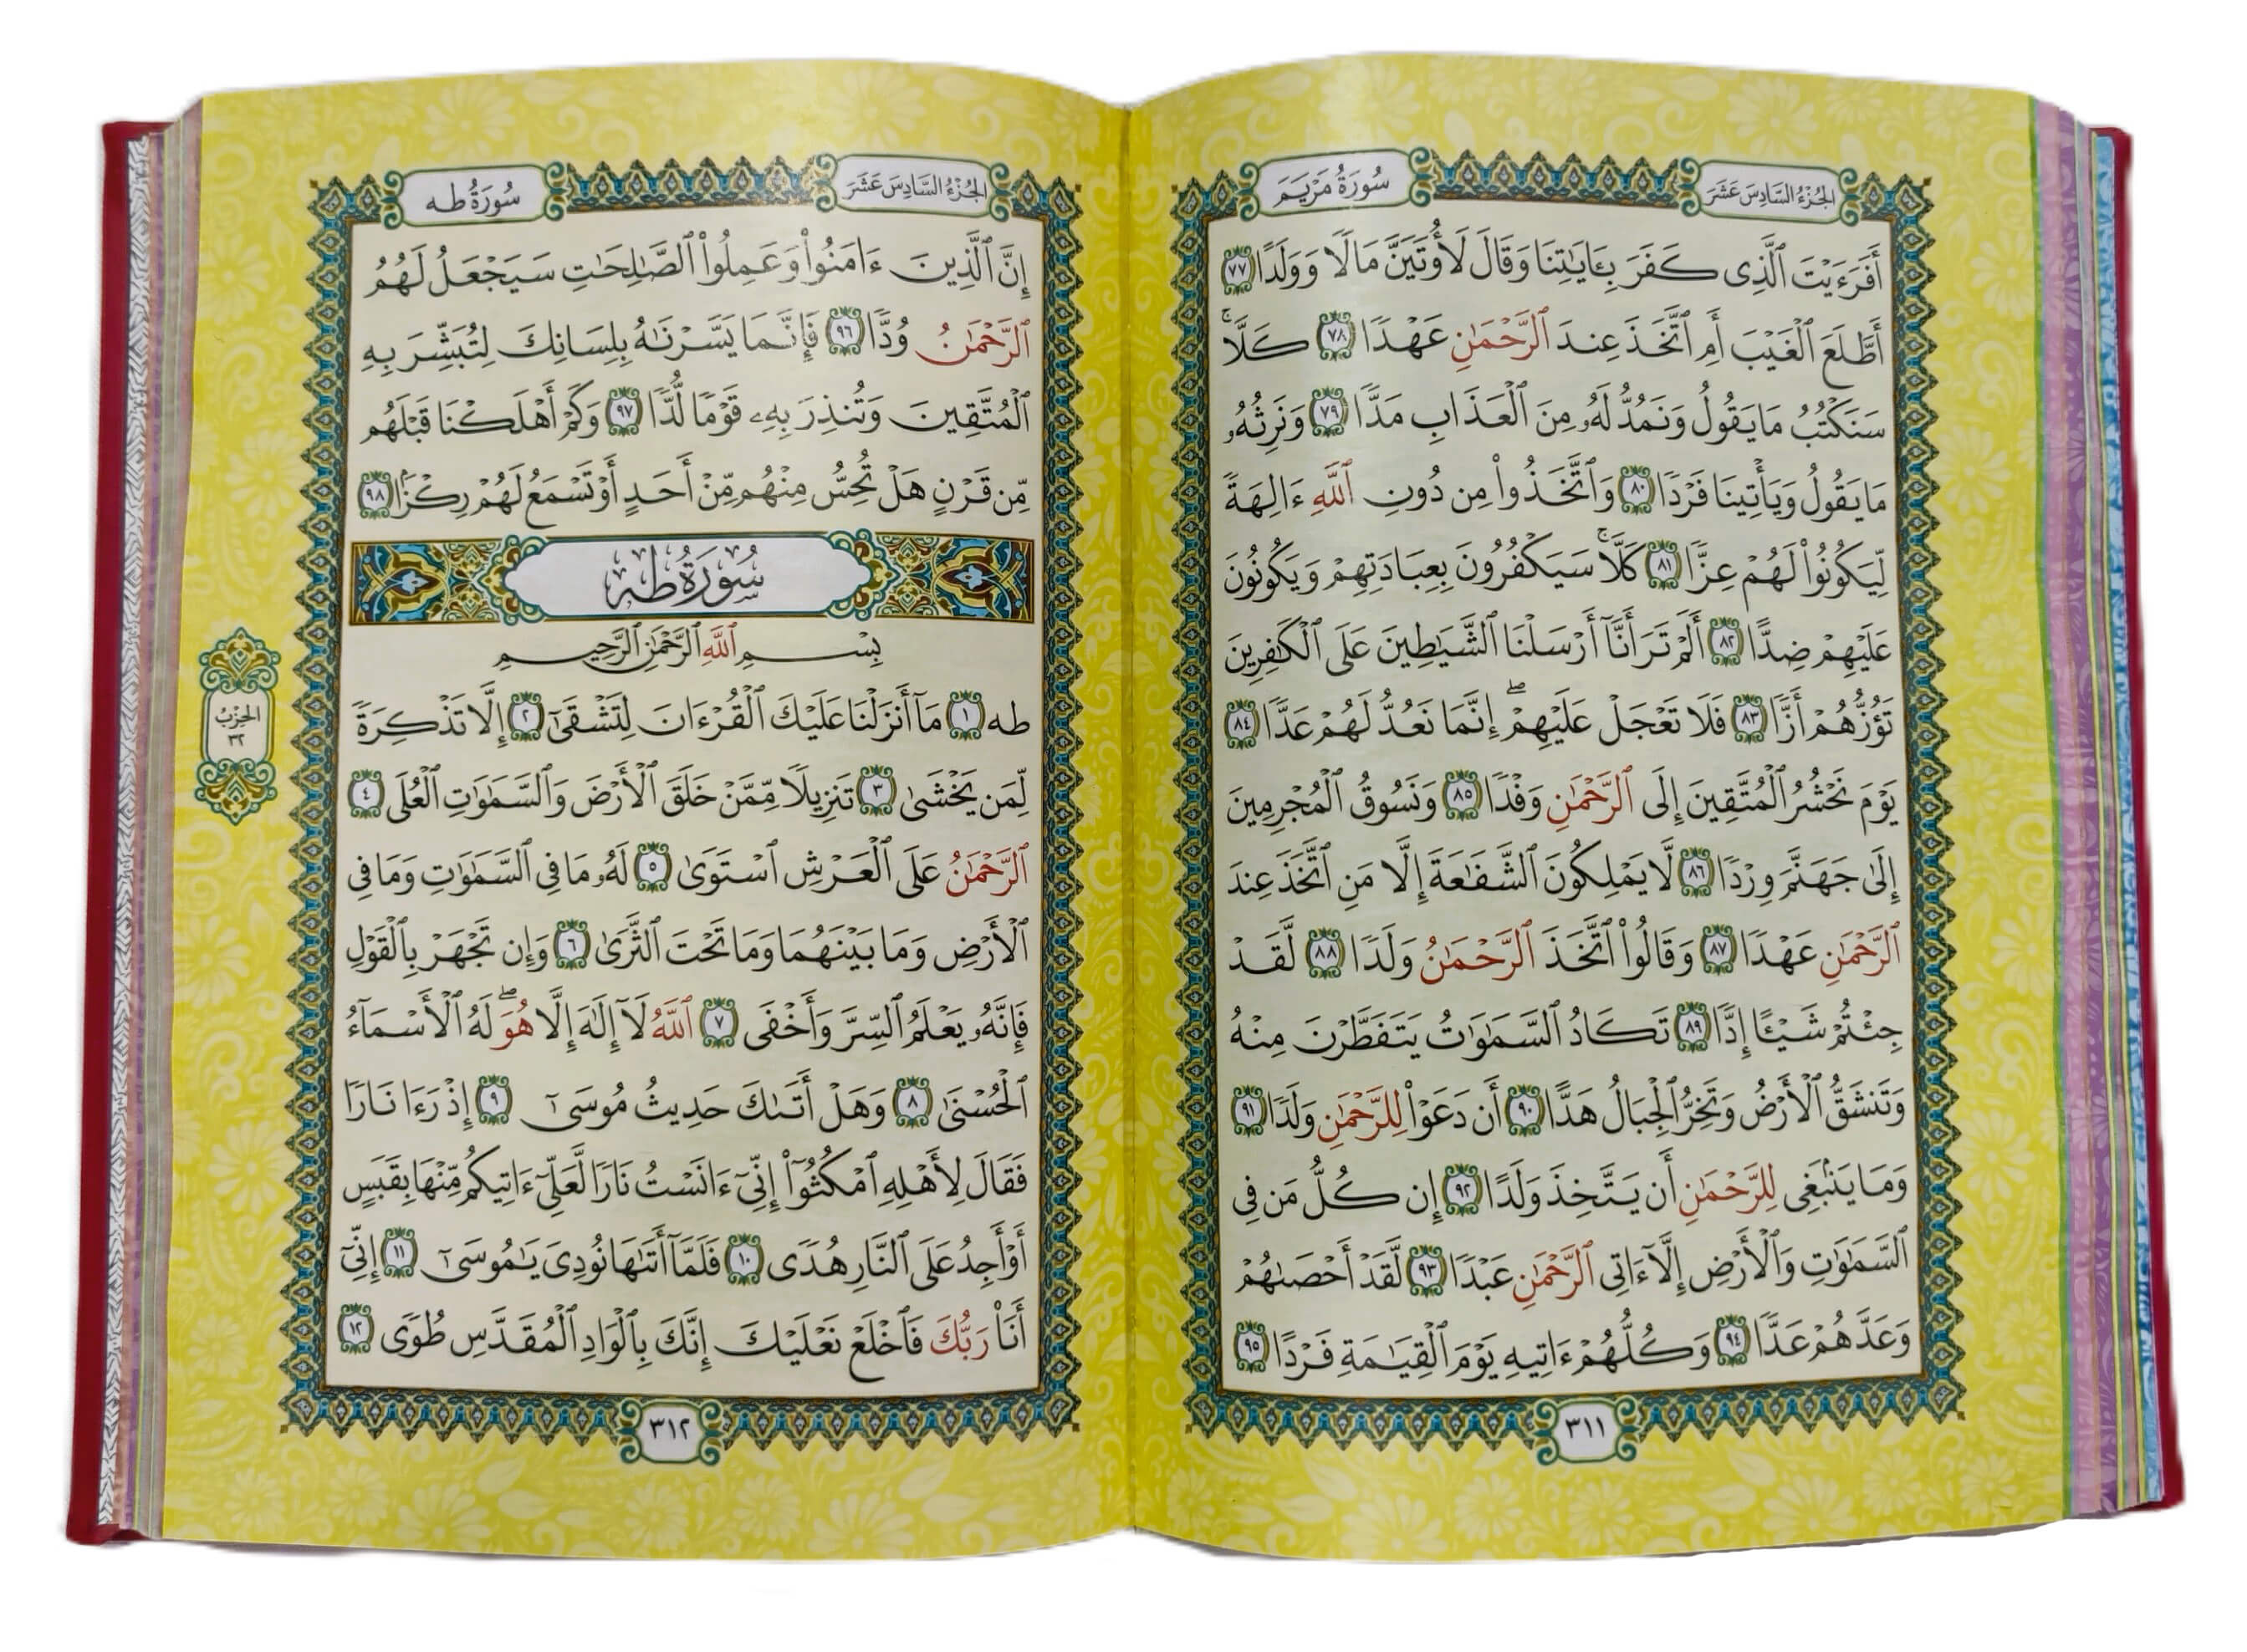 الجزء السادس عشر
سورة مريم
أَفَرَءَيْتَ ٱلَّذِى كَفَرَ بِـَٔايَـٰتِنَا وَقَالَ لَأُوتَيَنَّ مَالًا وَوَلَدًا ٧٧
أَطَّلَعَ ٱلْغَيْبَ أَمِ ٱتَّخَذَ عِندَ ٱلرَّحْمَـٰنِ عَهْدًا ٧٨ كَلَّا ۚ
سَنَكْتُبُ مَا يَقُولُ وَنَمُدُّ لَهُۥ مِنَ ٱلْعَذَابِ مَدًّا ٧٩ وَنَرِثُهُۥ
مَا يَقُولُ وَيَأْتِينَا فَرْدًا ٨٠ وَٱتَّخَذُوا۟ مِن دُونِ ٱللَّهِ ءَالِهَةً
لِّيَكُونُوا۟ لَهُمْ عِزًّا ٨١ كَلَّا ۚ سَيَكْفُرُونَ بِعِبَادَتِهِمْ وَيَكُونُونَ
عَلَيْهِمْ ضِدًّا ٨٢ أَلَمْ تَرَ أَنَّآ أَرْسَلْنَا ٱلشَّيَـٰطِينَ عَلَى ٱلْكَـٰفِرِينَ
تَؤُزُّهُمْ أَزًّا ٨٣ فَلَا تَعْجَلْ عَلَيْهِمْ ۖ إِنَّمَا نَعُدُّ لَهُمْ عَدًّا ٨٤
يَوْمَ نَحْشُرُ ٱلْمُتَّقِينَ إِلَى ٱلرَّحْمَـٰنِ وَفْدًا ٨٥ وَنَسُوقُ ٱلْمُجْرِمِينَ
إِلَىٰ جَهَنَّمَ وِرْدًا ٨٦ لَّا يَمْلِكُونَ ٱلشَّفَـٰعَةَ إِلَّا مَنِ ٱتَّخَذَ عِندَ
ٱلرَّحْمَـٰنِ عَهْدًا ٨٧ وَقَالُوا۟ ٱتَّخَذَ ٱلرَّحْمَـٰنُ وَلَدًا ٨٨ لَّقَدْ
جِئْتُمْ شَيْـًٔا إِدًّا ٨٩ تَكَادُ ٱلسَّمَـٰوَٰتُ يَتَفَطَّرْنَ مِنْهُ
وَتَنشَقُّ ٱلْأَرْضُ وَتَخِرُّ ٱلْجِبَالُ هَدًّا ٩٠ أَن دَعَوْا۟ لِلرَّحْمَـٰنِ وَلَدًا ٩١
وَمَا يَنۢبَغِى لِلرَّحْمَـٰنِ أَن يَتَّخِذَ وَلَدًا ٩٢ إِن كُلُّ مَن فِى
ٱلسَّمَـٰوَٰتِ وَٱلْأَرْضِ إِلَّآ ءَاتِى ٱلرَّحْمَـٰنِ عَبْدًا ٩٣ لَّقَدْ أَحْصَىٰهُمْ
وَعَدَّهُمْ عَدًّا ٩٤ وَكُلُّهُمْ ءَاتِيهِ يَوْمَ ٱلْقِيَـٰمَةِ فَرْدًا ٩٥
٣١١
الجزء السادس عشر
سورة طه
إِنَّ ٱلَّذِينَ ءَامَنُوا۟ وَعَمِلُوا۟ ٱلصَّـٰلِحَـٰتِ سَيَجْعَلُ لَهُمُ
ٱلرَّحْمَـٰنُ وُدًّا ٩٦ فَإِنَّمَا يَسَّرْنَـٰهُ بِلِسَانِكَ لِتُبَشِّرَ بِهِ
ٱلْمُتَّقِينَ وَتُنذِرَ بِهِۦ قَوْمًا لُّدًّا ٩٧ وَكَمْ أَهْلَكْنَا قَبْلَهُم
مِّن قَرْنٍ هَلْ تُحِسُّ مِنْهُم مِّنْ أَحَدٍ أَوْ تَسْمَعُ لَهُمْ رِكْزًۢا ٩٨
سُورَةُ طه
بِسْمِ ٱللَّهِ ٱلرَّحْمَـٰنِ ٱلرَّحِيمِ
طه ١ مَآ أَنزَلْنَا عَلَيْكَ ٱلْقُرْءَانَ لِتَشْقَىٰٓ ٢ إِلَّا تَذْكِرَةً
لِّمَن يَخْشَىٰ ٣ تَنزِيلًا مِّمَّنْ خَلَقَ ٱلْأَرْضَ وَٱلسَّمَـٰوَٰتِ ٱلْعُلَى ٤
ٱلرَّحْمَـٰنُ عَلَى ٱلْعَرْشِ ٱسْتَوَىٰ ٥ لَهُۥ مَا فِى ٱلسَّمَـٰوَٰتِ وَمَا فِى
ٱلْأَرْضِ وَمَا بَيْنَهُمَا وَمَا تَحْتَ ٱلثَّرَىٰ ٦ وَإِن تَجْهَرْ بِٱلْقَوْلِ
فَإِنَّهُۥ يَعْلَمُ ٱلسِّرَّ وَأَخْفَى ٧ ٱللَّهُ لَآ إِلَـٰهَ إِلَّا هُوَ ۖ لَهُ ٱلْأَسْمَآءُ
ٱلْحُسْنَىٰ ٨ وَهَلْ أَتَىٰكَ حَدِيثُ مُوسَىٰٓ ٩ إِذْ رَءَا نَارًا
فَقَالَ لِأَهْلِهِ ٱمْكُثُوٓا۟ إِنِّىٓ ءَانَسْتُ نَارًا لَّعَلِّىٓ ءَاتِيكُم مِّنْهَا بِقَبَسٍ
أَوْ أَجِدُ عَلَى ٱلنَّارِ هُدًى ١٠ فَلَمَّآ أَتَىٰهَا نُودِىَ يَـٰمُوسَىٰٓ ١١ إِنِّىٓ
أَنَا۠ رَبُّكَ فَٱخْلَعْ نَعْلَيْكَ إِنَّكَ بِٱلْوَادِ ٱلْمُقَدَّسِ طُوًى ١٢
الحزب
٣٢
٣١٢